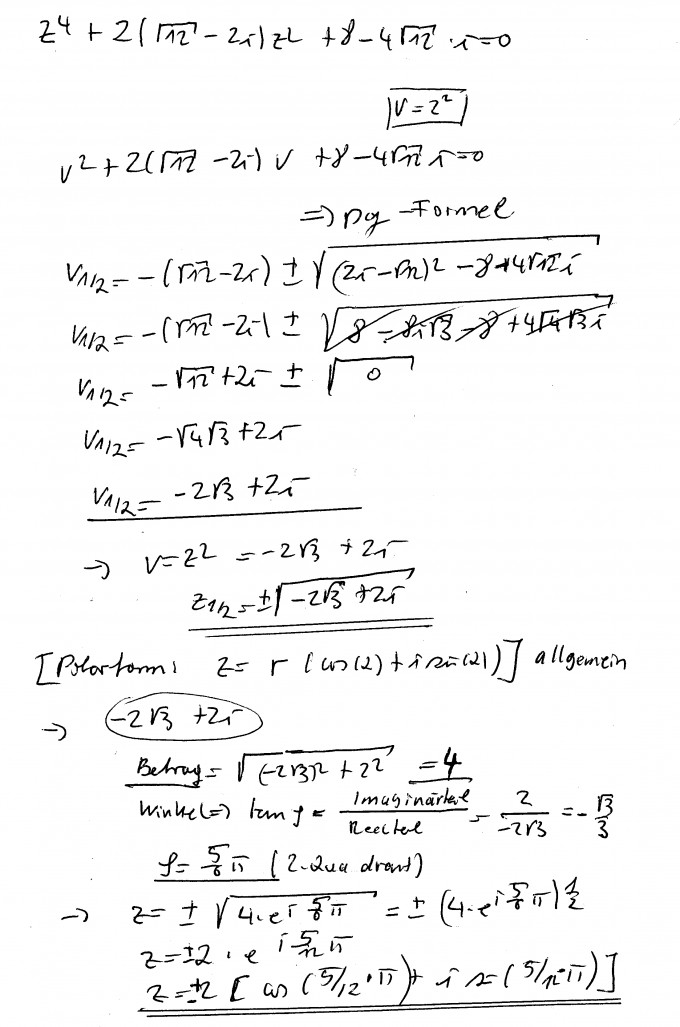 z⁴ + 2(√12 - 2i)z² + 8 - 4√12 · i = 0
v = z²
v² + 2(√12 - 2i) v + 8 - 4√12 i = 0
=> pq-Formel
v1/2 = -(√12 - 2i) ± √((2i - √12)² - 8 + 4√12 i)
v1/2 = -(√12 - 2i) ± √(8 - 8i√3 - 8 + 4√4√3 i)
v1/2 = -√12 + 2i ± √0
v1/2 = -√4√3 + 2i
v1/2 = -2√3 + 2i
→ v = z² = -2√3 + 2i
z1/2 = ±√(-2√3 + 2i)
[Polarform: z = r (cos(2) + i sin(2))] allgemein
→ -2√3 + 2i
Betrag = √((-2√3)² + 2²) = 4
Winkel => tan φ = Imaginärteil / Reelteil = 2 / -2√3 = -√3/3
φ = 5/6 π (2. Quadrant)
→ z = ± √(4·e^(i 5/6 π)) = ± (4·e^(i 5/6 π))^(1/2)
z = ±2 · e^(i 5/12 π)
z = ±2 [cos (5/12·π) + i sin (5/12·π)]